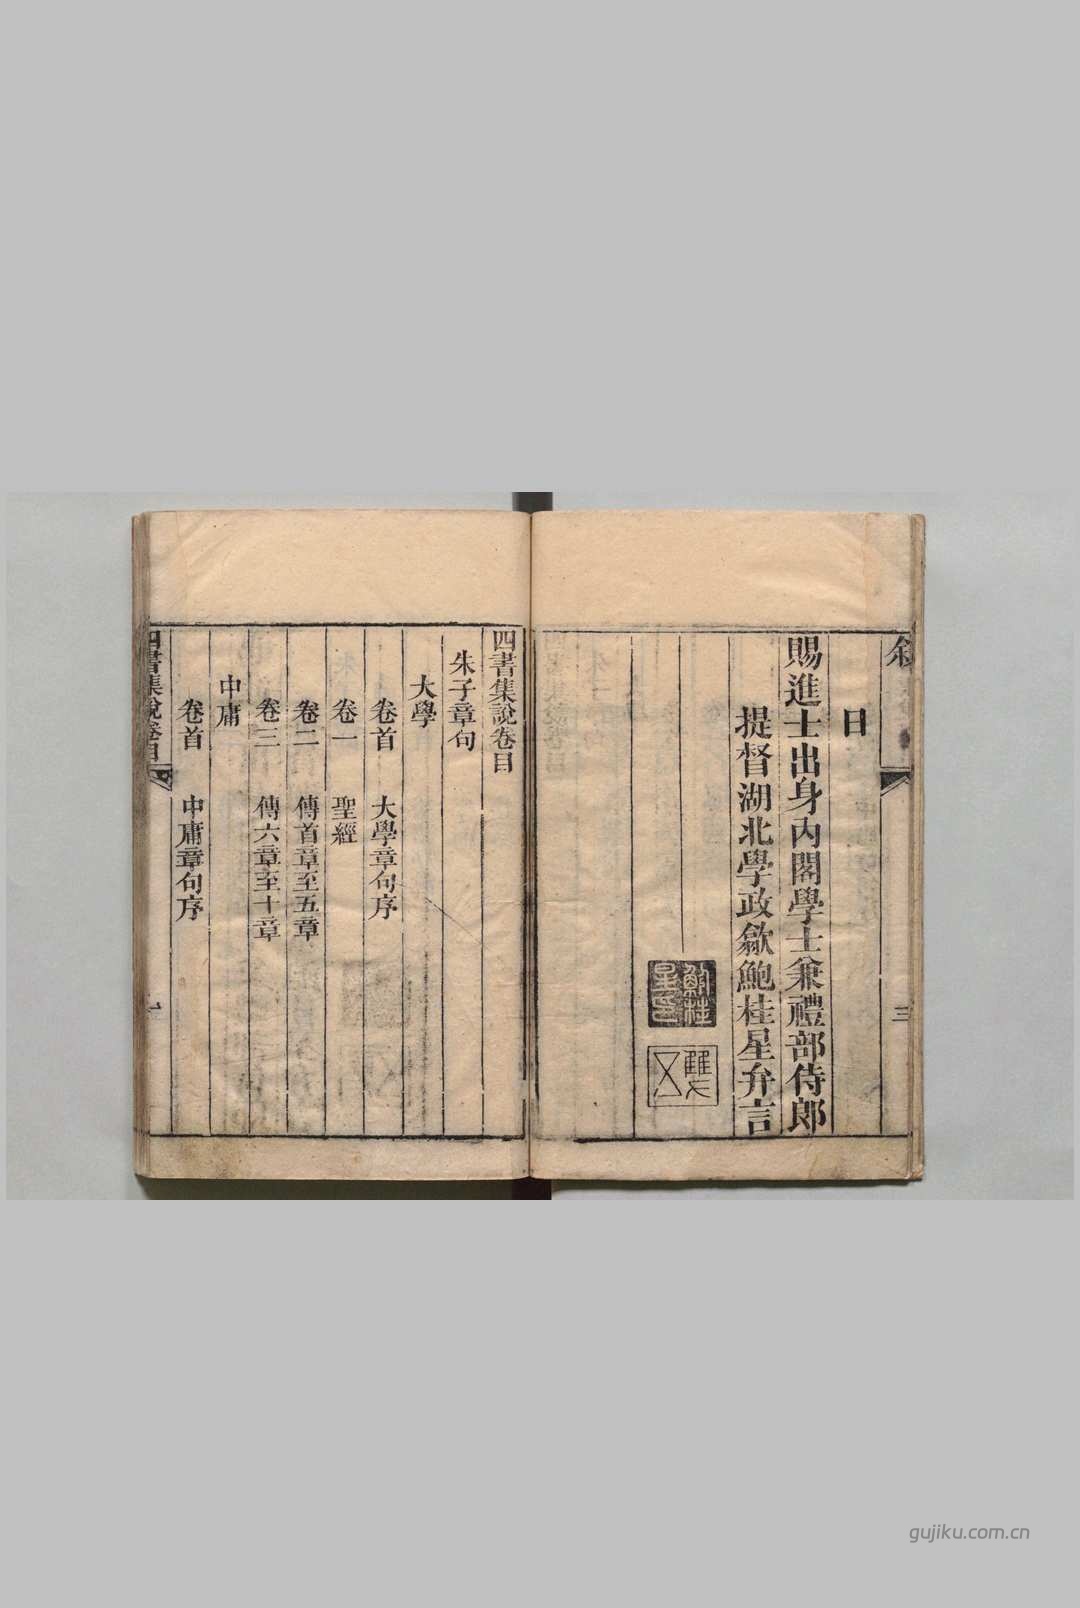 三
日
賜進士出身內閣學士兼禮部侍郎
提督湖北學政歙鮑桂星弁言
四書集說卷目
朱子章句
大學
卷首 大學章句序
卷一 聖經
卷二 傳首章至五章
卷三 傳六章至十章
中庸
卷首 中庸章句序
四書集說卷目
gujiku.com.cn